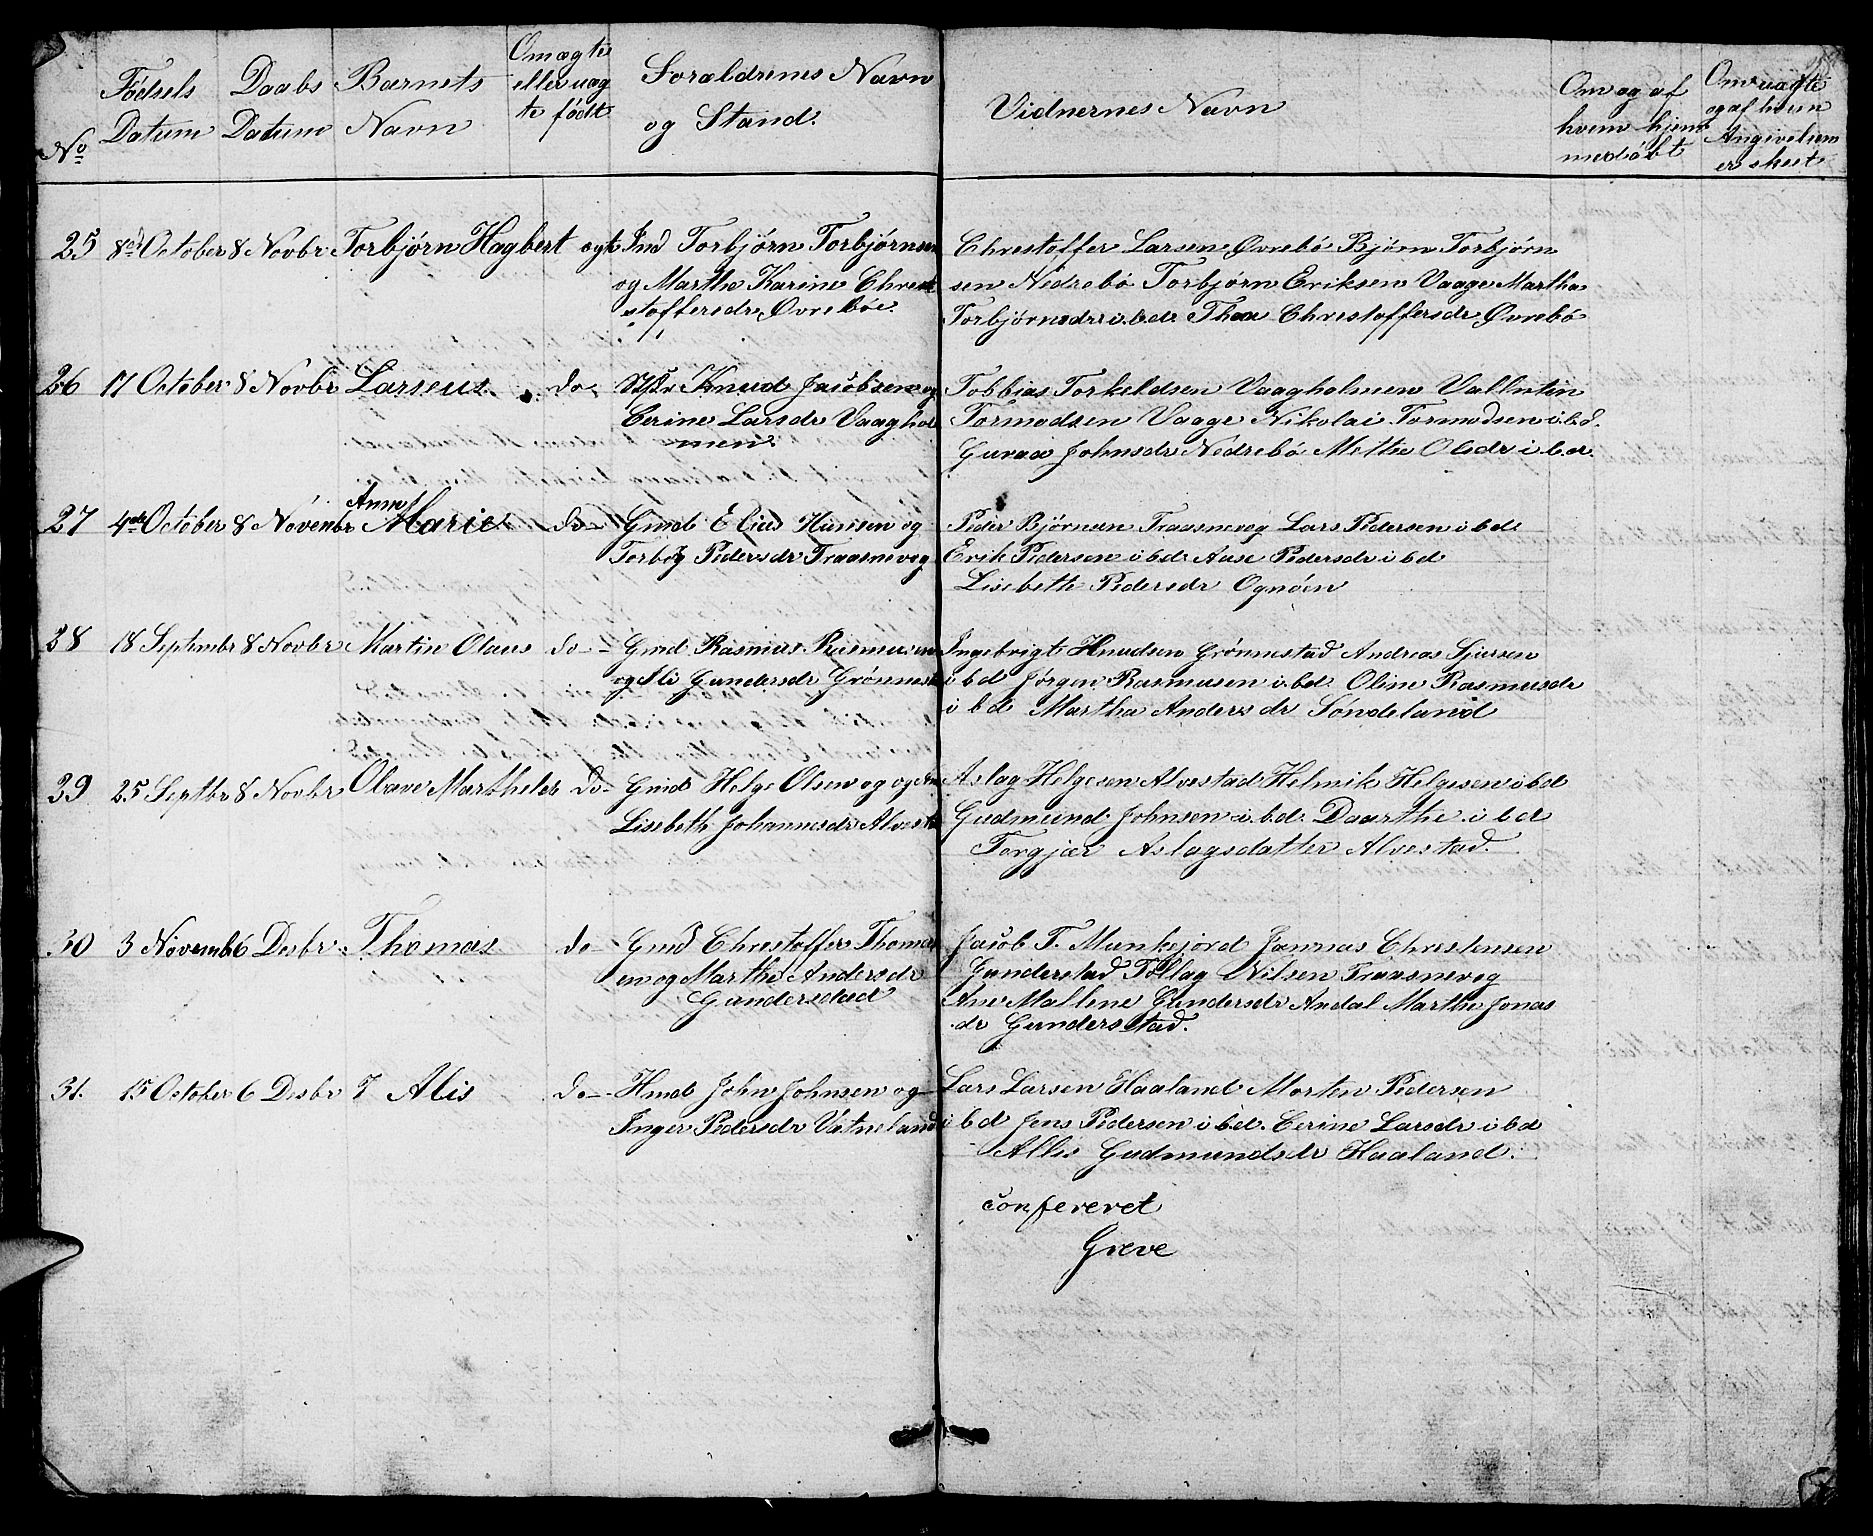 No Fødsels Datum Daabs Datum Barnets Navn Om ægte eller uægte født Foraldrenes Navn og Stand. Vidnernes Navn Om og af hvem hjemmedøbt Om uægte og af hvem Angivelsen er skeet
25 8de October 8 Novbr Torbjørn Hagbert ægte Ind Torbjørn Torbjørnsen
og Marthe Karine Chri
stoffersdr Øvrebøe.
Christoffer Larsen Øvrebö Bjørn Torbjørn
sen Nedrebö Torbjørn Eriksen Vaage Martha
Torbjørnsdr i.b.d. Thea Christoffersdr Øvrebö
26 17 October 8 Novbr Larseus. do. Knud Jacobsen og
Cerine Larsdr Vaaghol
men.
Tobbias Torkeldsen Vaagholmen Vallentin
Tormodsen Vaage Nikolai Tormodsen i.b.d.
Guroa Johnsdr Nedrebö Methe Olsdr i b.d.
27 4de October 8 Novenbr Anne Marie do Gmd Elias Hansen og
Torborg Pedersdr Traasnevog
Peder Bjørnsen Traasnevog Lars Pedersen i b d
Erik Pedersen i b d Aase Pedersdr i b d
Lisebeth Pedersdr Ognöen
28 18 Septembr 8 Novbr Martin Olaus do Gmd Rasmus Rasmussen
og Gundersdr Grönnesta
Ingebrigt Knudsen Grönnestad Andreas Sjursen
i b d Jörgen Rasmusen i.b.d. Oline Rasmusdr
i b d Martha Andersdr Söndeland
29 25 Septbr 8 Novbr Olave Marthele do Gmd Helge Olsen og og An
Lisebeth Johannesdr Alvesta
Aslag Helgesen Alvestad Helmik Helgesen i b d
Gudmund Johnsen i.b.d. Daarthe i b d
Torgjær Aslagsdatter Alvestad.
30 3 Novemb 6 Desbr Thomas do Gmd Christoffer Thomas
en og Marthe Andersdr
Gunderstad
Jacob T. Munkejord Jonnas Christensen
Gunderstad Tollag Nilsen Traasnevog
Ane Mallene Gundersdr Andal Marthe Jonas
dr Gunderstad.
31. 15 October 6 Desbr T Alis do Hmd John Johnsen og
Inger Pedersdr Vatneland
Lars Larsen Haaland Morten Pedersen
i b d Jens Pedersen i b.d. Cerine Larsdr i b d
Allis Gudmundsdr Haaland.
confereret
Greve